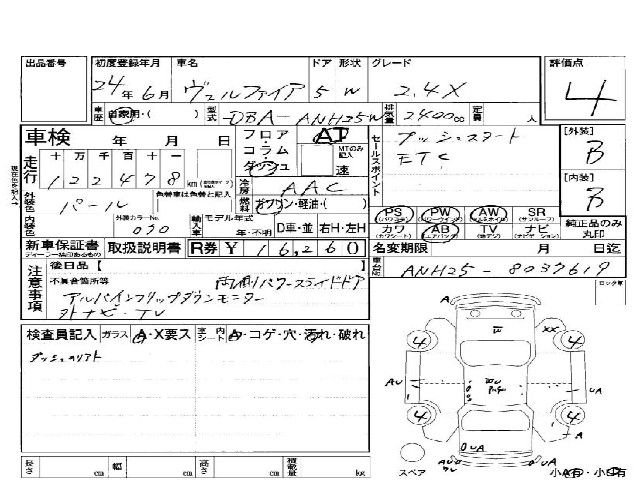 出品番号 初度登録年月 車名 ドア 形状 グレード 評価点
24年 6月 ヴェルファイア 5 W 2.4X 4
車歴 自家用・( ) 型式 DBA-ANH25W 排気量 2400cc 定員 人
車検 年 月 日 フロア・コラム・ダッシュ AT MTのみ記入 速
セールスポイント プッシュスタート
ETC
[外装] B
[内装] B
走行 十万千百十一 122478 km
冷房 AAC
外装色 パール 色替車は色替と記入 燃料 ガソリン・軽油・( )
内装色 外装カラーNo. 070 輸入車 モデル年式 年・不明 D車・並 右H・左H
PS (パワステ) PW (パワーウインドウ) AW (アルミホイル) SR (サンルーフ)
カワ (カワシート) AB (エアバック) TV ナビ (ナビゲーション)
純正品のみ丸印
新車保証書 取扱説明書 R券 ¥16,260 名変期限 月 日迄
注意事項 後日品【 】
車台No. ANH25-8037619
ロック有
不具合箇所等 両側パワースライドドア
アルパインフリップダウンモニター
外ナビ・TV
検査員記入 ガラス A・X要ス 室内シート A・コゲ・穴・汚れ・破れ
A
W
XX
4 4
AU
UA
4 4
A
UA
UA
スペア
小A有・小U有
長さ cm 幅 cm 高さ cm 積載量 kg